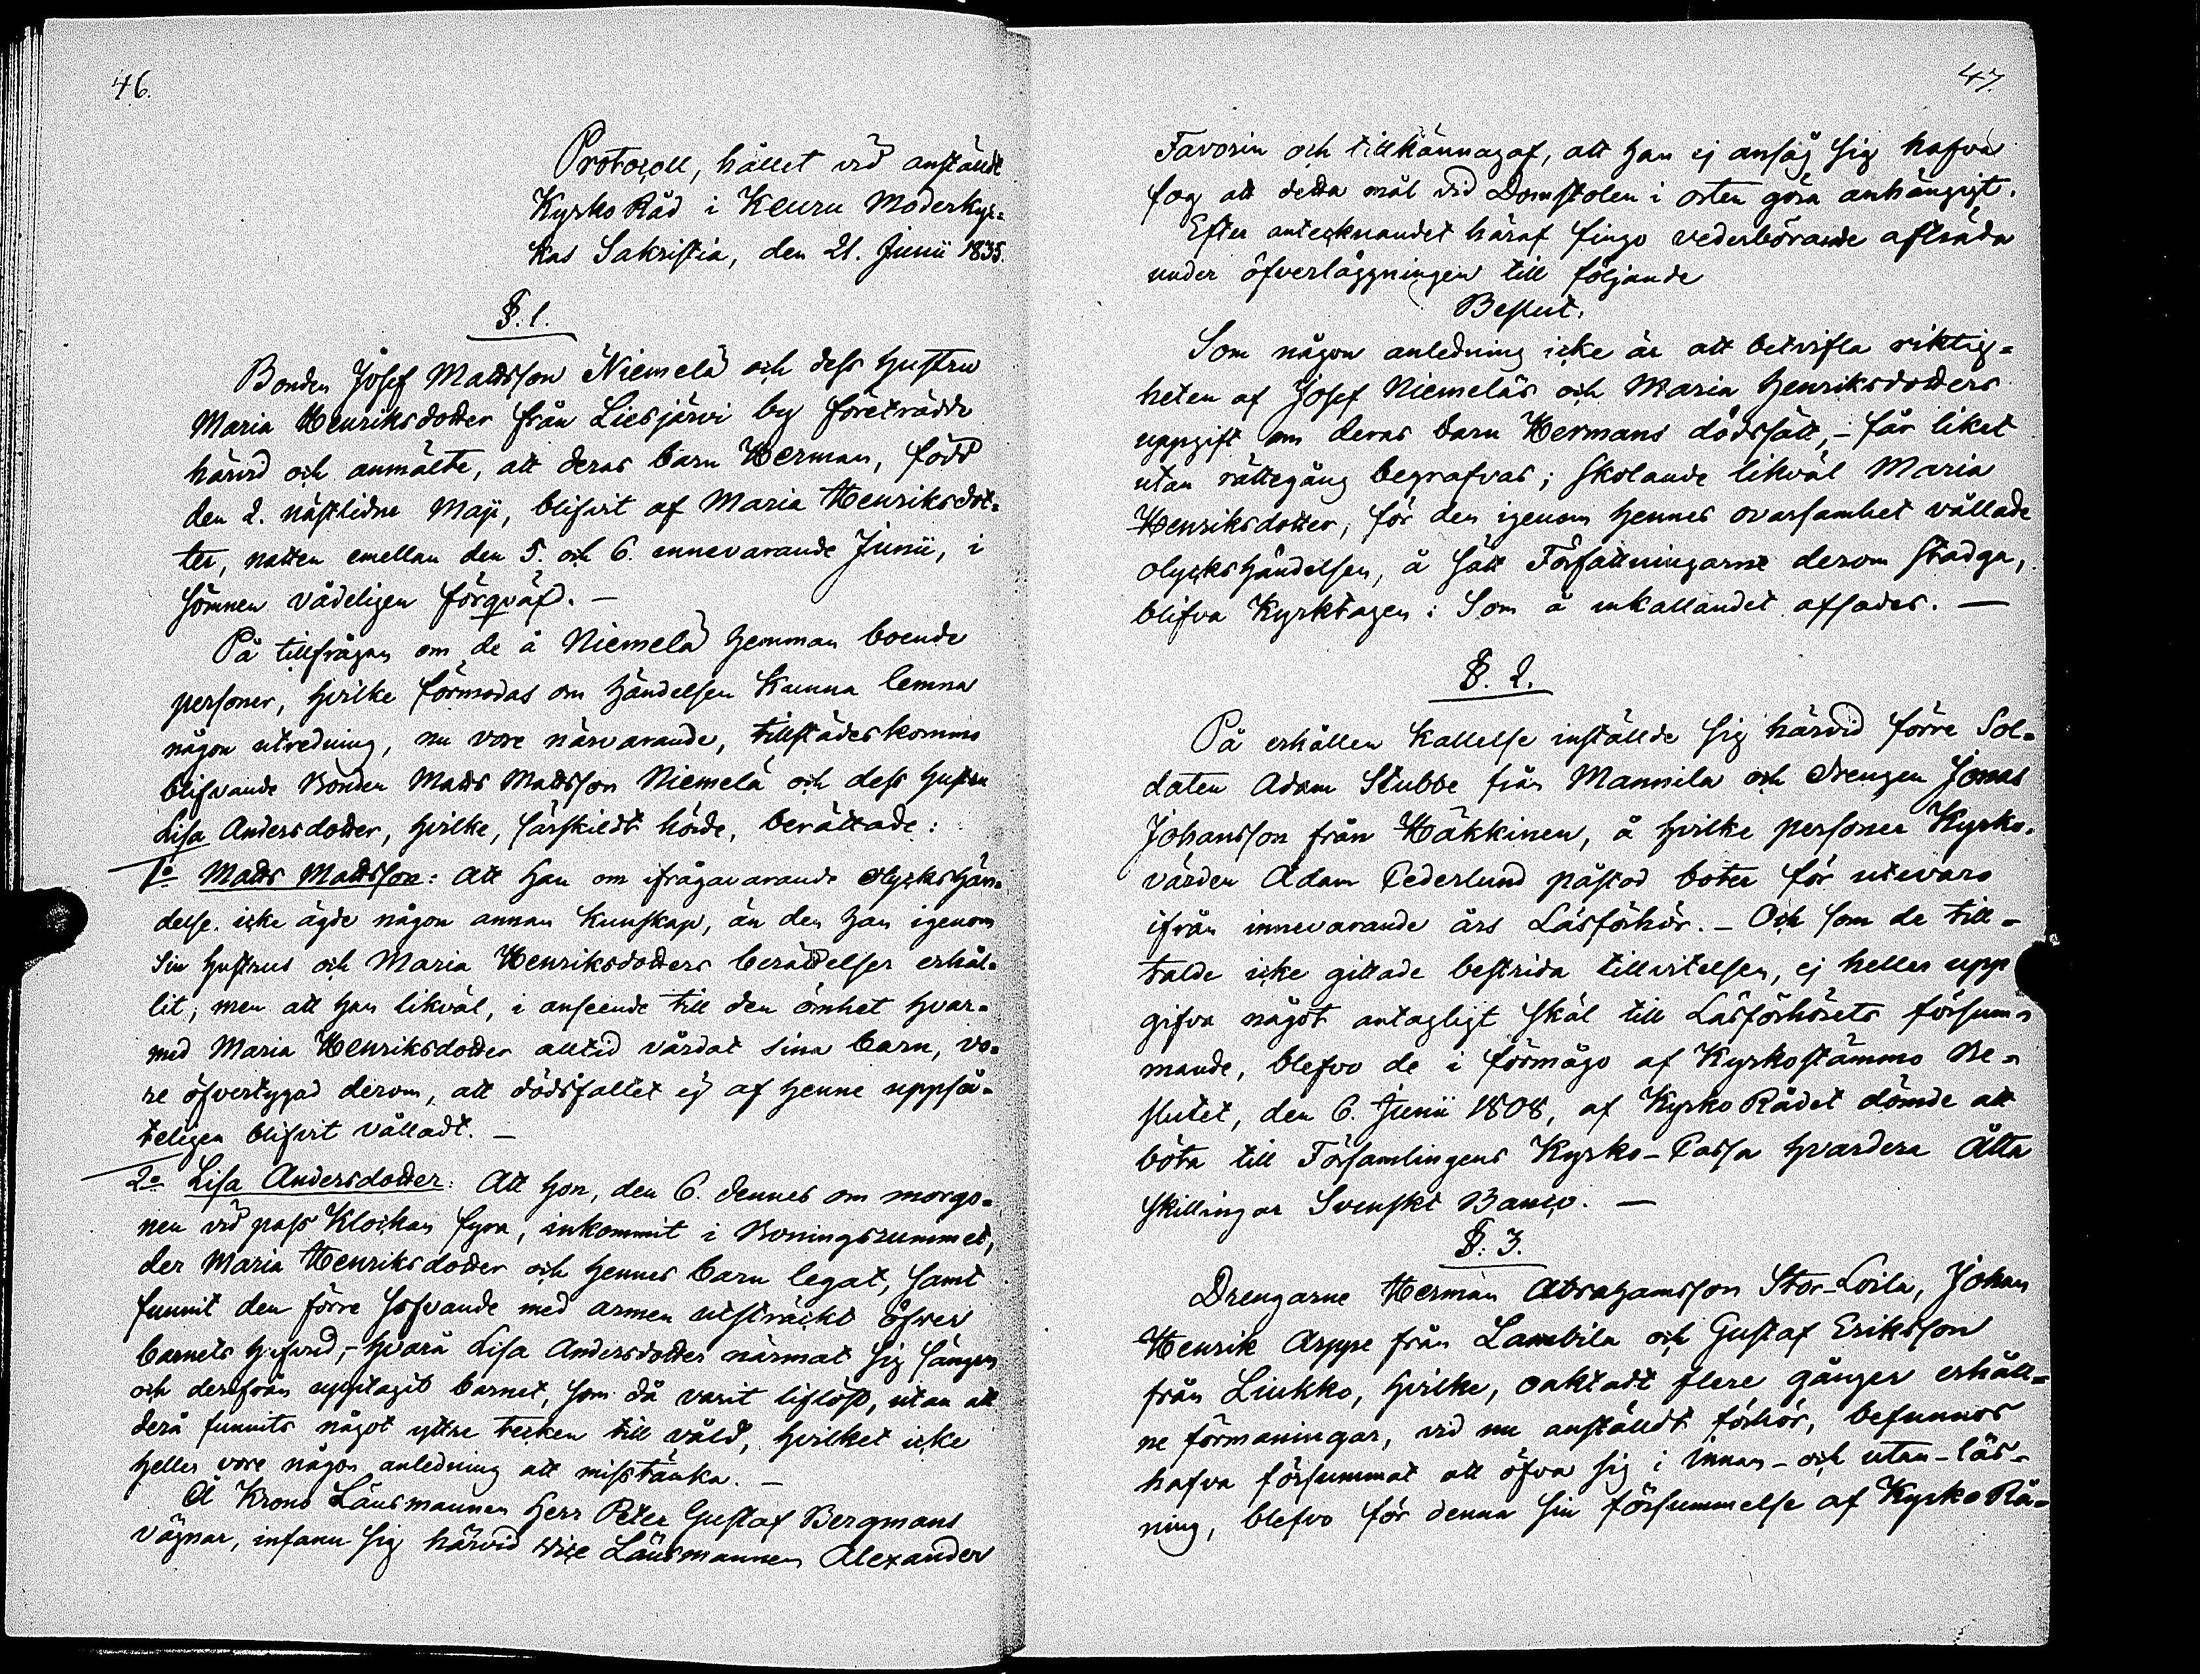 46.
Protocoll, hållet vid anstäldt
Kyrko Råd i Keuru Moderkyr-
kas Sakristia, den 21. Junii 1835.
§. 1.
Bonden Josef Mattsson Niemelä och dess hustru
Maria Henriksdotter från Liesjärvi by företrädde
härvid och anmälte, att deras barn Herman, född
den 2. nästlidne Maji, blifvit af Maria Henriksdot-
ter, natten emellan den 5. och 6. innevarande Junii, i
sömnen vådeligen förqväfd. —
På tillfrågan om de å Niemelä hemman boende
personer, hvilke förmodas om händelsen kunna lemna
någon utredning, nu vore närvarande, tillstädeskomne
blifvande Bonden Matts Mattsson Niemelä och dess hustru
Lisa Andersdotter, hvilke, särskildt hörde, berättade:
1o Matts Mattsson: Att han om ifrågavarande olyckshän-
delse icke ägde någon annan kunskap, än den han igenom
sin hustrus och Maria Henriksdotters berättelser erhål-
lit; men att han likväl, i anseende till den ömhet hvar-
med Maria Henriksdotter alltid vårdat sina barn, vo-
re öfvertygad derom, att dödsfallet ej af henne uppså-
teligen blifvit vålladt. —
2o Lisa Andersdotter: Att hon, den 6. dennes om morgo-
nen vid pass Klockan fyra, inkommit i Boningsrummet,
der Maria Henriksdotter och hennes barn legat, samt
funnit den förre sofvande med armen utsträckt öfver
barnets hufvud, – hvarå Lisa Andersdotter närmat sig sängen
och derifrån upptagit barnet, som då varit liflöst, utan att
derå funnits något yttre tecken till våld, hvilket icke
heller vore någon anledning att misstänka. —
Å Krono Länsmannen Herr Peter Gustaf Bergmans
vägnar, infann sig härvid Vice Länsmannen Alexander
47.
Favorin och tillkännagaf, att han ej ansåg sig hafva
fog att detta mål vid Domstolen i orten göra anhängigt.
Efter antecknandet häraf fingo vederbörande afträda
under öfverläggningen till följande
Beslut.
Som någon anledning icke är att betvifla riktig-
heten af Josef Niemeläs och Maria Henriksdotters
uppgift om deras barn Hermans dödssätt, – får liket
utan rättegång begrafvas; skolande likväl Maria
Henriksdotter, för den igenom hennes ovarsamhet vållade
olyckshändelsen, å sätt Författningarne derom stadga,
blifva Kyrktagen: Som å inkallandet afsades. —
§. 2.
På erhållen kallelse inställde sig härvid förre Sol-
daten Adam Stubbe från Mannila och drengen Jonas
Johansson från Häkkinen, å hvilke personer Kyrko-
värden Adam Cederlund påstod böter för utevaro
ifrån innevarande års Läsförhör. – Och som de till-
talde icke gittade bestrida tillvitelsen, ej heller upp
gifva något antagligt skäl till Läsförhörets försum-
mande, blefvo de i förmågo af Kyrkostämmo Be-
slutet, den 6. Junii 1808, af Kyrko Rådet dömde att
böta till Församlingens Kyrko-Cassa hvardera Åtta
skillingar Svenskt Banco. —
§. 3.
Drengarne Herman Abrahamsson Stor-Loila, Johan
Henrik Arppe från Lambila och Gustaf Eriksson
från Liukko, hvilke, oaktadt flere gånger erhåll-
ne förmaningar, vid nu anställdt förhör, befunnos
hafva försummat att öfva sig i innan- och utan-läs-
ning, blefvo för denna sin försummelse af Kyrko Rå-